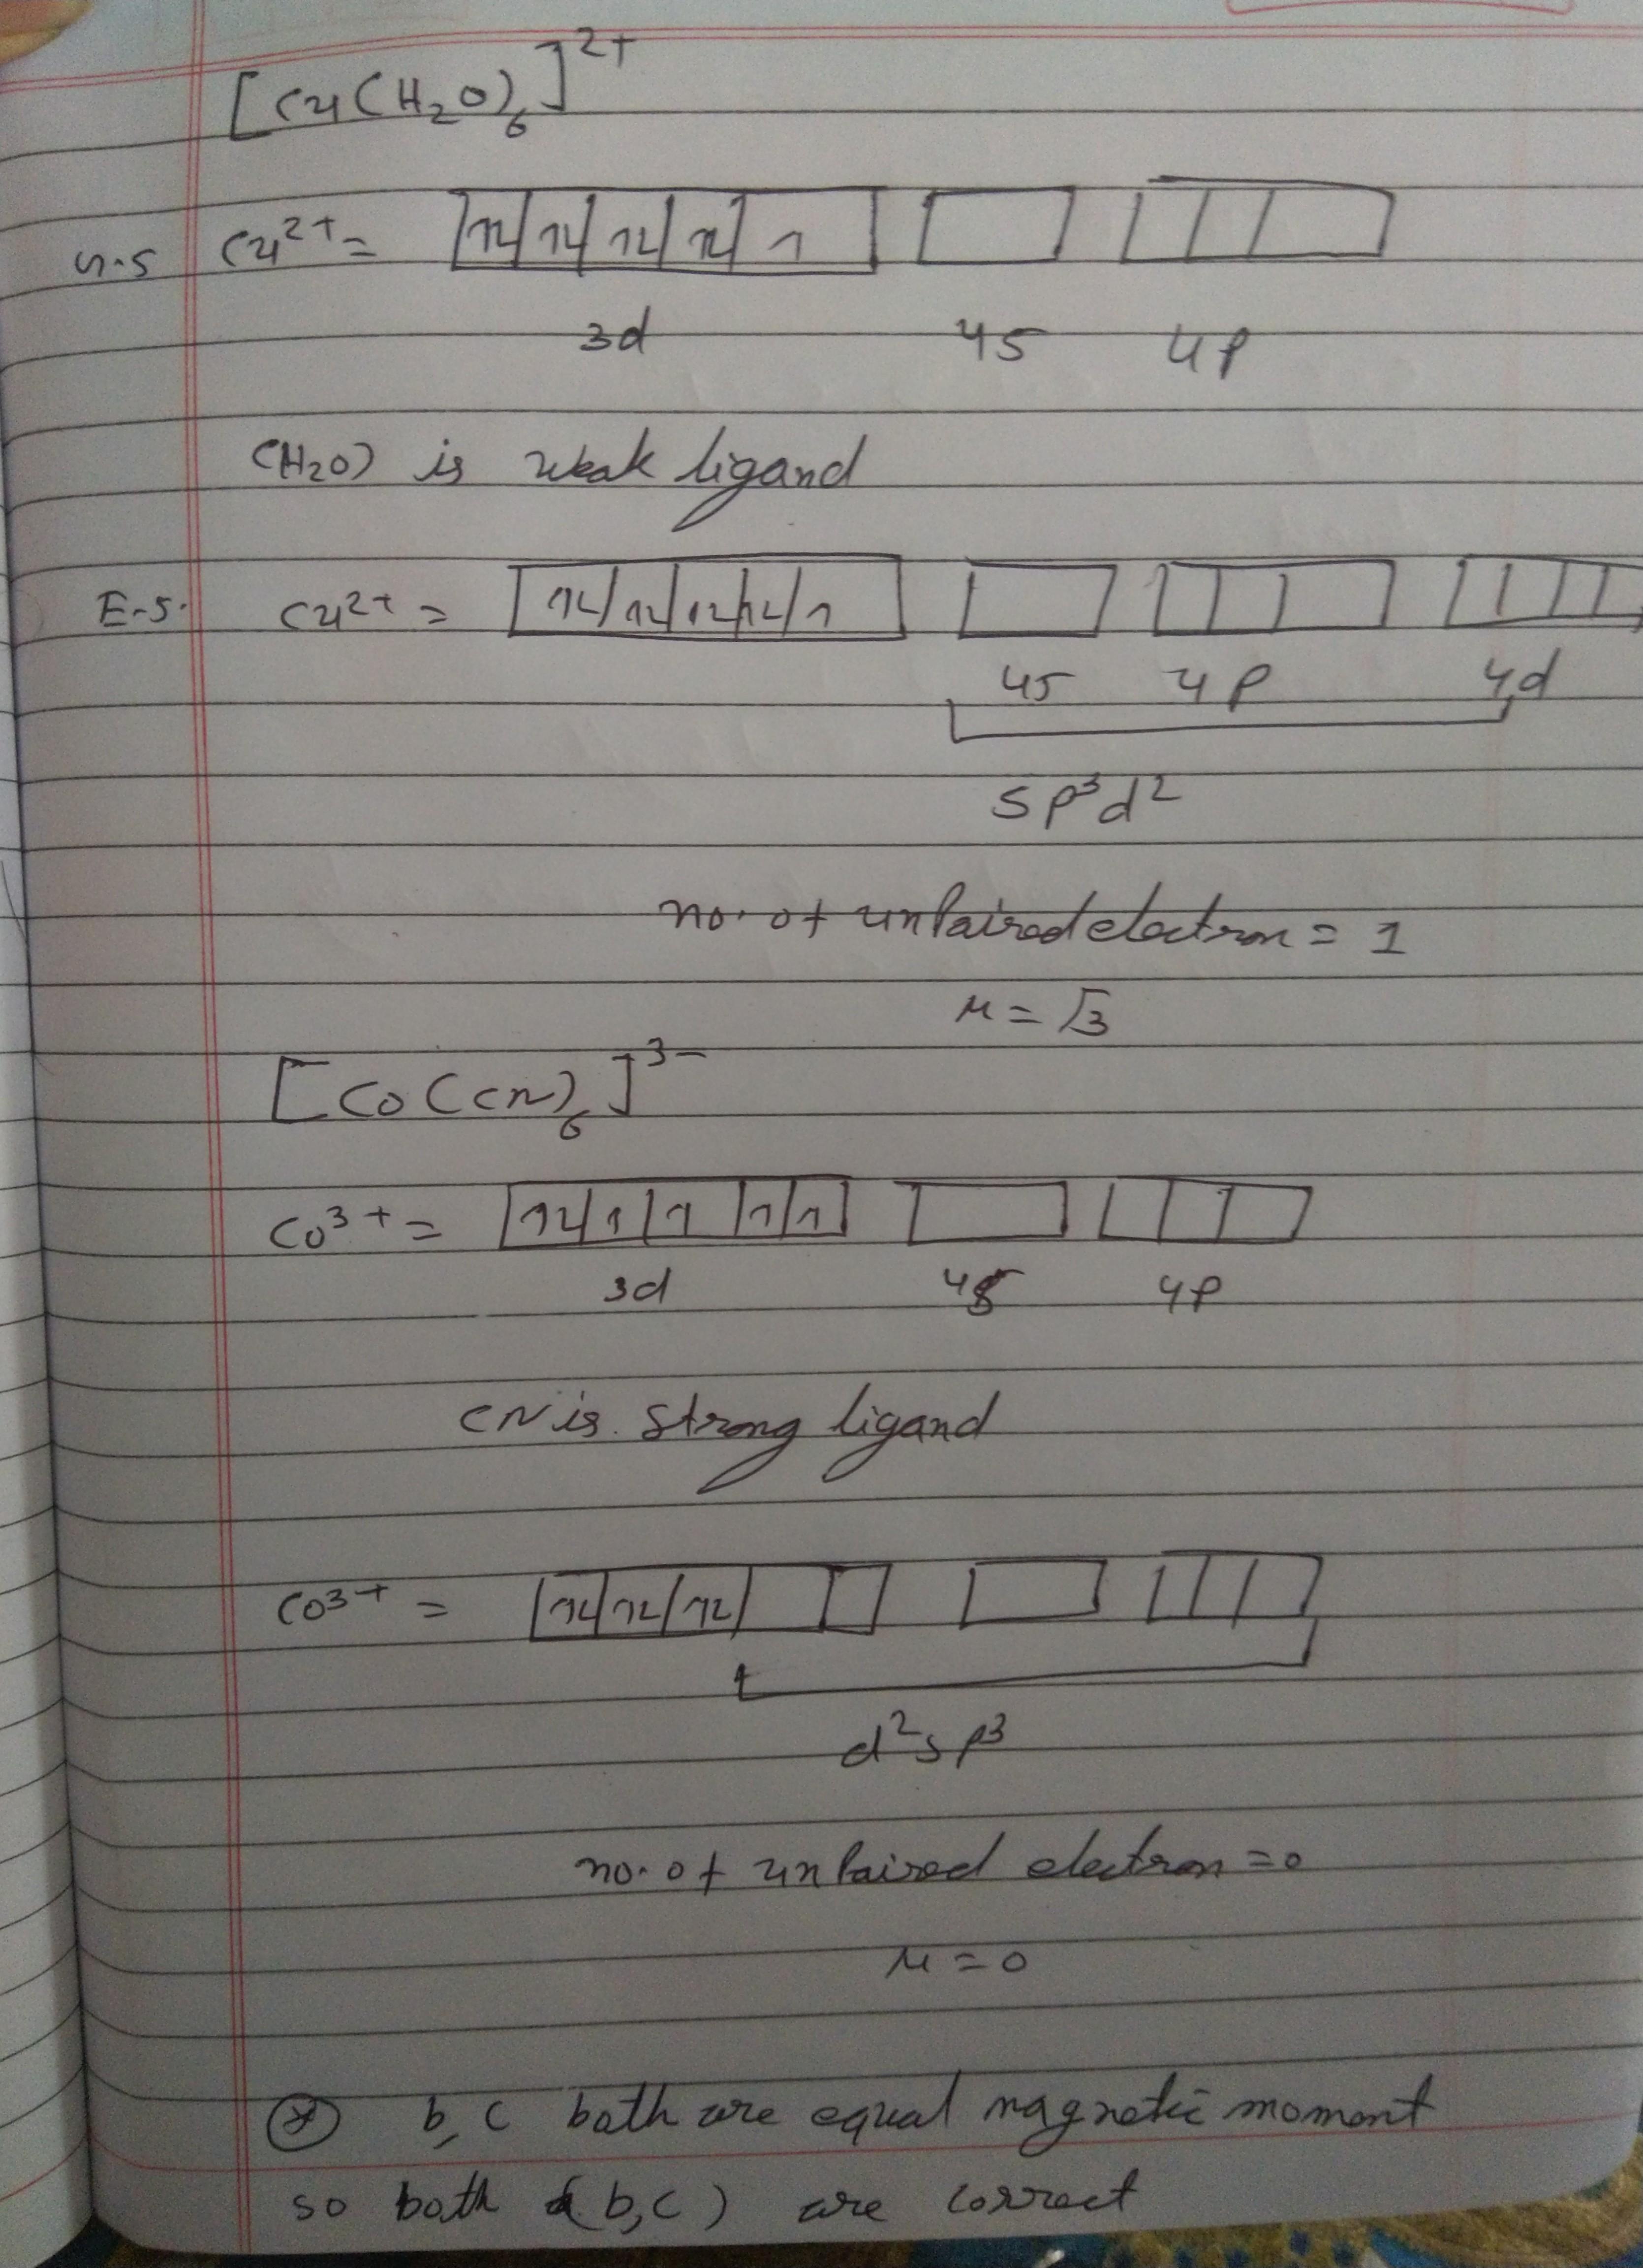 [Cu(H₂O)₆]²⁺
G.S Cu²⁺ = 1L 1L 1L 1L 1
3d 4s 4p
(H₂O) is weak ligand
E.S. Cu²⁺ = 1L 1L 1L 1L 1
4s 4p 4d
sp³d²
no. of unpaired electron = 1
μ = √3
[Co(CN)₆]³⁻
Co³⁺ = 1L 1 1 1 1
3d 4s 4p
CN is strong ligand
Co³⁺ = 1L 1L 1L
d²sp³
no. of unpaired electron = 0
μ = 0
* b, c both are equal magnetic moment
so both (b, c) are correct